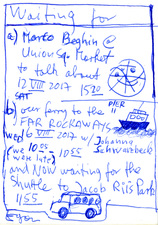 Waiting for
a) Marco Beghin @
Union Sq. Market
to talk about
12 VIII 2017 15:20
SAT
b) our ferry to the PIER 11
FAR ROCKAWAYS
wed 16 VIII 2017 w/ Johanna
(we 10:55 - 10:55 Schwarzbeck
and NOW waiting for the
Shuttle to Jacob Riis Park
11:55